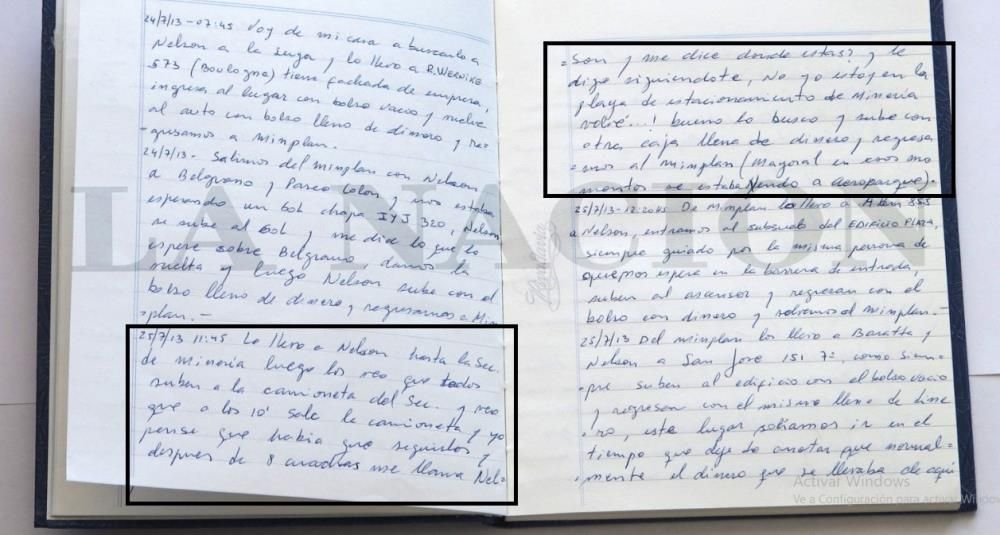 24/7/13-07:45 Voy de mi casa a buscarlo a
Nelson a la suya y lo llevo a R. WERNIKE
573 (Boulogne) tiene fachada de empresa,
ingresa al lugar con bolso vacio y vuelve
al auto con bolso lleno de dinero y re=
=gresamos a Minplan.
24/7/13- Salimos del minplan con Nelson
a Belgrano y Paseo Colon y nos estaba
esperando un Gol chapa IYJ 320, Nelson
se sube al Gol y me dice lo que lo
espere sobre Belgrano, damos la
vuelta y luego Nelson sube con el
bolso lleno de dinero y regresamos a Min
=plan.-
25/7/13 11:45 Lo llevo a Nelson hasta la Sec.
de minería luego los veo que todos
suben a la camioneta del Sec. y veo
que a los 10' sale la camioneta y yo
pense que habia que seguirlos y
despues de 8 cuadras me llama Nel=
=son y me dice donde estas? y le
digo siguiendote, No yo estoy en la
playa de estacionamiento de Minería
volvé...! bueno lo busco y sube con
otra caja llena de dinero y regresa
=mos al minplan (Mayoral en esos mo
mentos se estaba yendo a aeroparque).
25/7/13-12:20HS De Minplan lo llevo a Alem 855
a Nelson, entramos al subsuelo del EDIFICIO PLAZA,
siempre guiado por la misma persona de
que nos espera en la barrera de entrada,
suben al ascensor y regresan con el
bolso con dinero y volvemos al minplan.-
25/7/13 Del minplan los llevo a Baratta y
Nelson a San Jose 151 7º, como siem=
=pre suben al edificio con el bolso vacio
y regresan con el mismo lleno de dine
=ro, este lugar soliamos ir en el
tiempo que deje de anotar que normal=
=mente el dinero que se llevaba de aqui
LA NACION
Activar Windows
Ve a Configuración para activar Windows